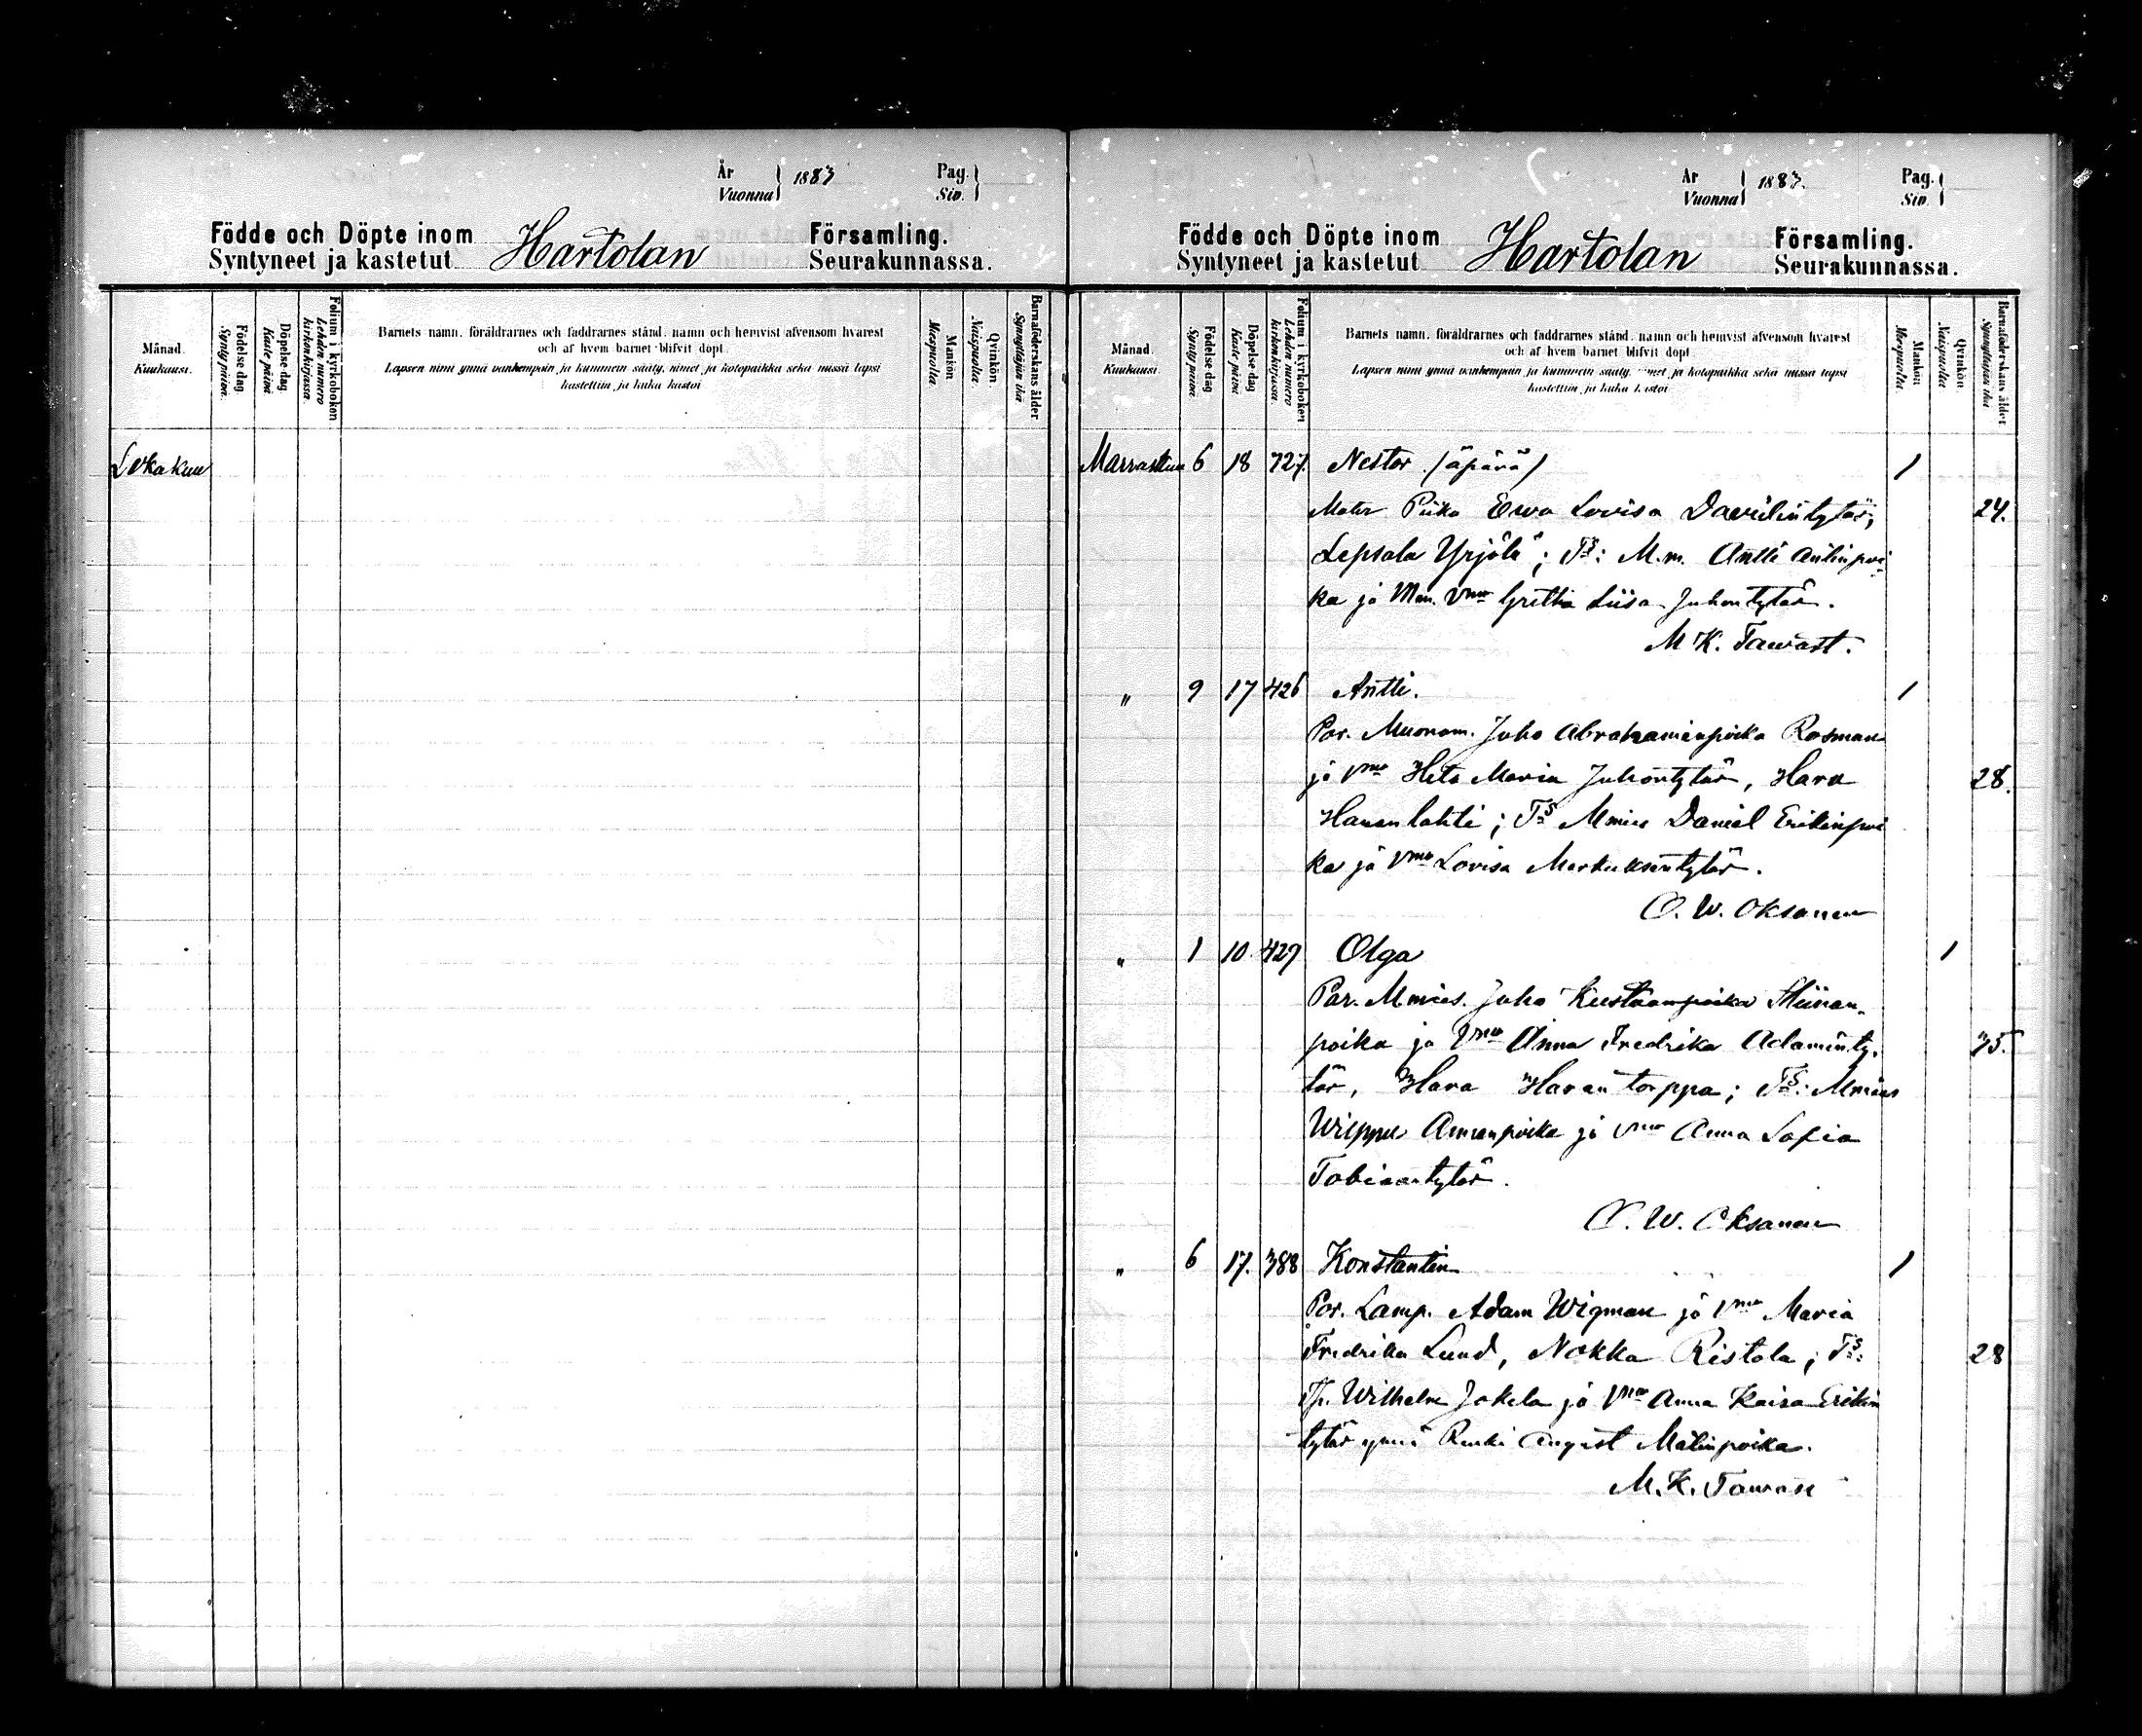 År
Vuonna 1883
Pag.
Siv.
Födde och Döpte inom
Syntyneet ja kastetut
Hartolan
Församling.
Seurakunnassa.
Månad.
Kuukausi.
Födelse dag
Synty päivä.
Döpelse dag
Kaste päivä
Folium i kyrkoboken
Lehden numero kirkonkirjassa.
Barnets namn, föräldrarnes och faddrarnes stånd, namn och hemvist afvensom hvarest
och af hvem barnet blifvit döpt.
Lapsen nimi ynnä vanhempain ja kummein sääty, nimet ja kotopaikka sekä missä lapsi
kastettiin ja kuka kastoi
Mankön
Miespuolta
Qvinkön
Naispuolta.
Barnaföderskans ålder
Synnyttäjän ikä
Lokakuu
År
Vuonna 1883.
Pag.
Siv.
Födde och Döpte inom
Syntyneet ja kastetut
Hartolan
Församling.
Seurakunnassa.
Månad.
Kuukausi.
Födelse dag
Synty päivä
Döpelse dag
Kaste päivä
Folium i kyrkoboken
Lehden numero kirkonkirjassa.
Barnets namn, föräldrarnes och faddrarnes stånd, namn och hemvist afvensom hvarest
och af hvem barnet blifvit döpt
Lapsen nimi ynnä vanhempain ja kummein sääty, nimet ja kotopaikka sekä missä lapsi
kastettiin ja kuka kastoi
Mankön
Miespuolta.
Qvinkön.
Naispuolta
Barnaföderskans ålder
Synnyttäjän ikä
Marraskuu 6 18 727. Nestor (äpärä) 1
Mater Piika Ewa Lovisa Davidintytär, 24.
Lepsala Yrjölä; Ts: M.m. Antti Antinpoi-
ka ja Mm. Vmo Gretta Liisa Juhontytär.
M K. Tawast.
" 9 17 426 Antti. 1
Par. Muonam. Juho Abrahaminpoika Rosman
ja Vmo Heta Maria Juhontytär, Hara 28.
Haranlahti; Ts Mmies Daniel Erikinpoi
ka ja Vmo Lovisa Markuksentytär.
O. W. Oksanen
" 1 10. 429 Olga 1
Par. Mmies. Juho Kustaanpoika Stiinan-
poika ja Vmo Anna Fredrika Adaminty- 35.
tär, Hara Haran torppa; Ts: Mmies
Wilppu Annanpoika ja Vmo Anna Sofia
Tobiaantytär.
O. W. Oksanen
" 6 17. 388 Konstantin 1
Par. Lamp. Adam Wigman ja Vmo Maria
Fredrika Lund, Nokka Ristola; Ts: 28
Tp. Wilhelm Jokela ja Vmo Anna Kaisa Erikin
tytär ynnä Renki August Matinpoika.
M. K. Tawast